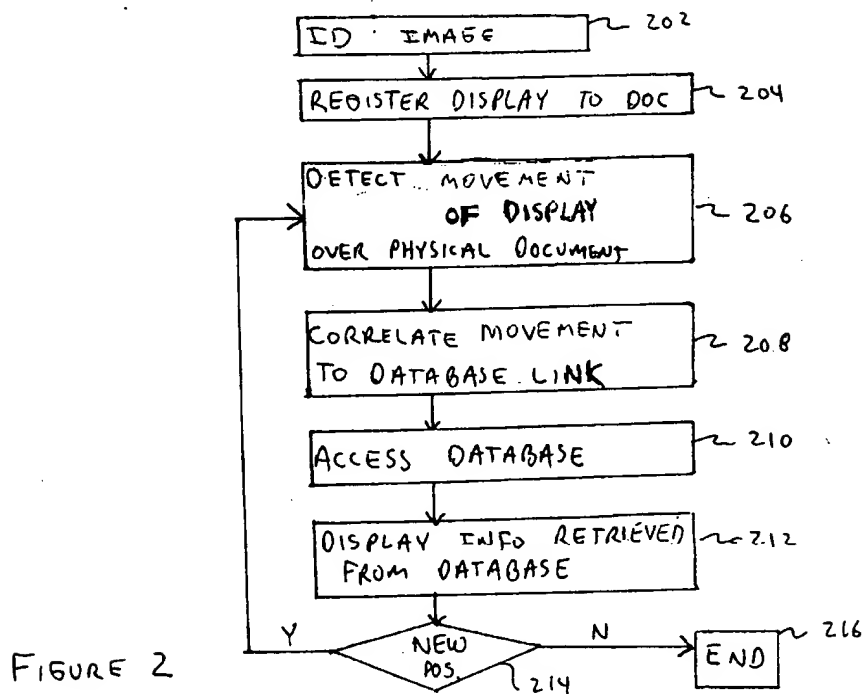 ID IMAGE
202
REGISTER DISPLAY TO DOC
204
DETECT MOVEMENT
OF DISPLAY
OVER PHYSICAL DOCUMENT
206
CORRELATE MOVEMENT
TO DATABASE LINK
208
ACCESS DATABASE
210
DISPLAY INFO RETRIEVED
FROM DATABASE
212
Y
NEW
POS.
214
N
END
216
FIGURE 2